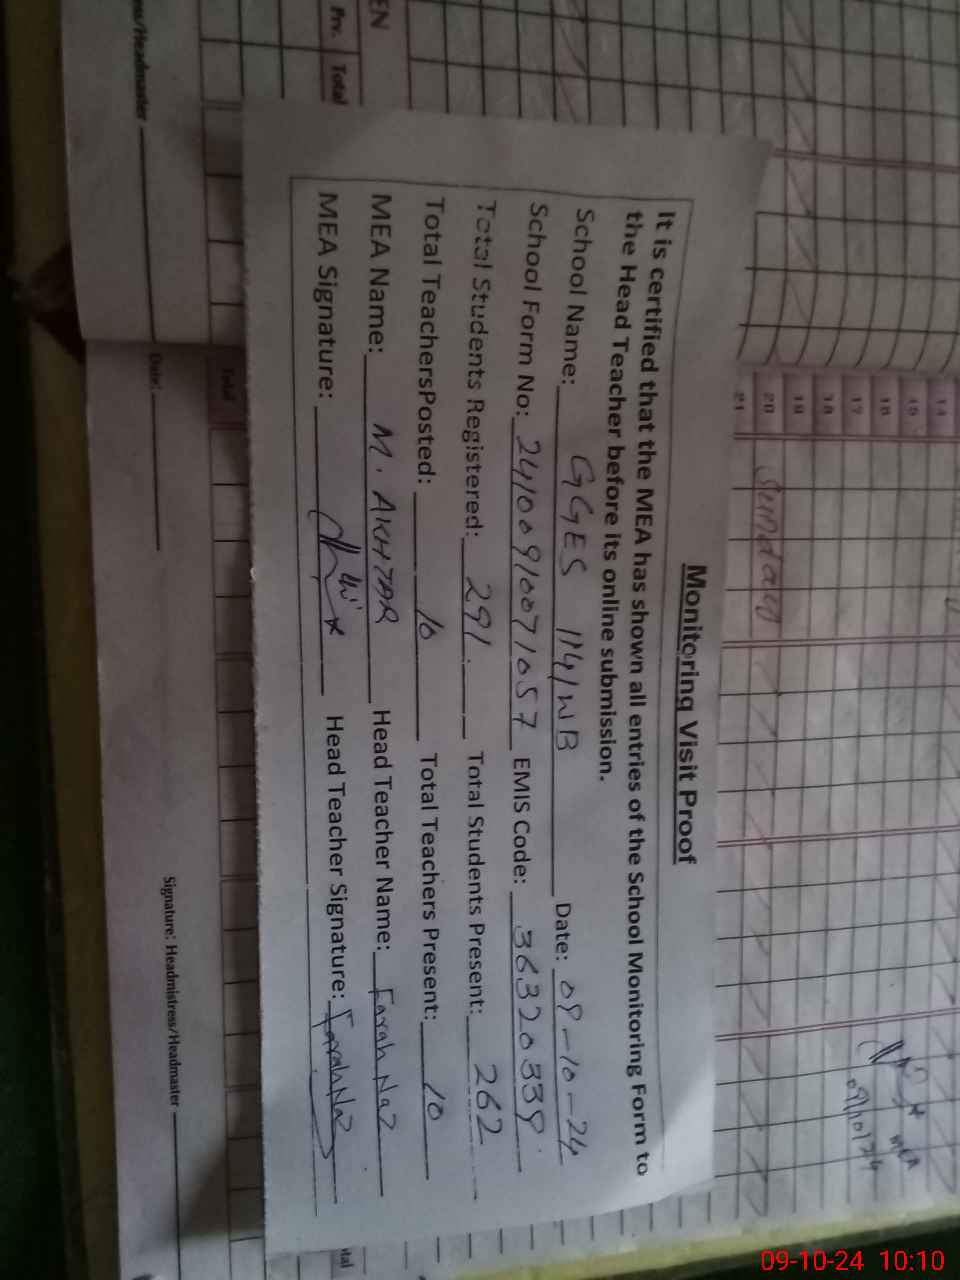 Monitoring Visit Proof
It is certified that the MEA has shown all entries of the School Monitoring Form to
the Head Teacher before its online submission.
School Name: GGES 114/WB Date: 09-10-24
School Form No: 24100910071057 EMIS Code: 36320339
Total Students Registered: 291. Total Students Present: 262
Total TeachersPosted: 10 Total Teachers Present: 10
MEA Name: M. AKHTAR Head Teacher Name: Farah Naz
MEA Signature: Head Teacher Signature: Farah Naz
EN
Prv. Total
ess/Headmaster
Date:
Total
Signature: Headmistress/Headmaster
14
15
16
17
18
19
20 Sunday
21
MEA
09/10/24
09-10-24 10:10